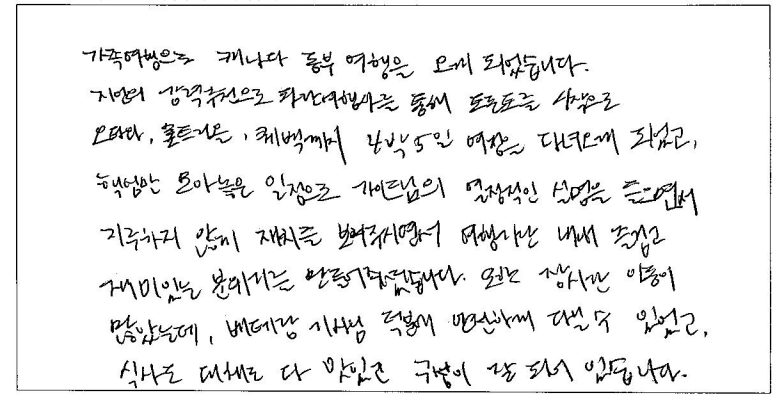 가족여행으로 캐나다 동부 여행을 오게 되었습니다.
지인의 강력추천으로 파란여행사를 통해 토론토를 시작으로
오타와, 몬트리올, 퀘벡까지 4박5일 여정을 다녀오게 되었고,
핵심만 모아놓은 일정으로 가이드님의 열정적인 설명을 들으면서
지루하지 않게 재치를 보여주시면서 여행기간 내내 즐겁고
재미있는 분위기를 만들어주셨습니다. 오랜 장시간 이동이
많았는데, 베테랑 기사님 덕분에 안전하게 다닐 수 있었고,
식사도 대체로 다 맛있고 구성이 잘 되어 있습니다.